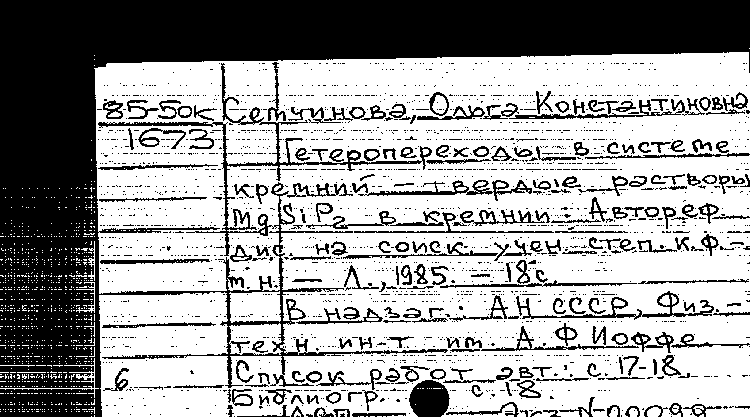 85-5ок Семчинова, Ольга Константиновна
1673 Гетеропереходы в системе
кремний — твердые растворы
MgSiP2 в кремнии: Автореф.
дис. на соиск. учен. степ. к.ф.-
м.н. — Л., 1985. — 18 с.
В надзаг.: АН СССР, Физ.-
техн. ин-т им. А.Ф.Иоффе.
6 Список работ авт.: с. 17-18.
Библиогр. с. 18.